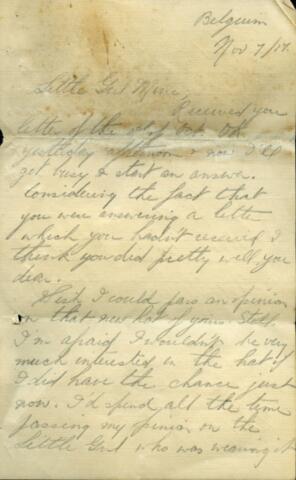 Belguim
Nov 7/17.
Little Girl Mine,
Received you
letter of the
yesterday afternoon & now I'll
get busy & start an answer.
Considering the fact that
you were answering a letter
which you hadn't received I
think you did pretty well you
dear.
Wish I could pass an opinion
on that new hat of yours. Still
I'm afraid I wouldn't be very
much interested in the hat if
I did have the chance just
now. I'd spend all the time
passing my opinion on the
Little Girl who was wearing it